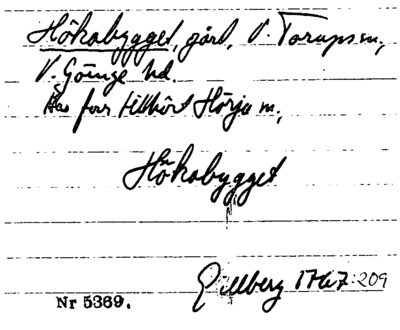 Hökabygget, gård, V. Torups sn,
V. Göinge hd.
Har förr tillhört Hörja sn,
Hökabygget
Gillberg 1767:209
Nr 5369.